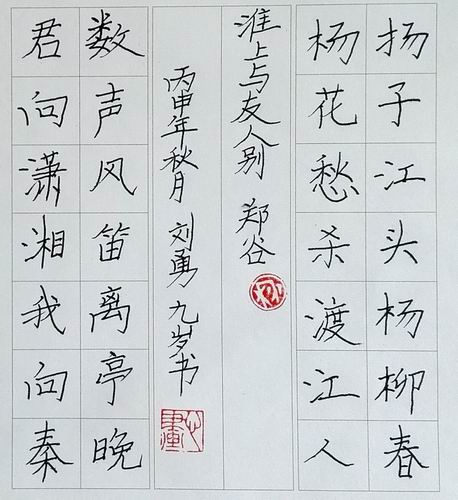 扬子江头杨柳春
杨花愁杀渡江人
淮上与友人别 郑谷
丙申年秋月 刘勇 九岁书
数声风笛离亭晚
君向潇湘我向秦